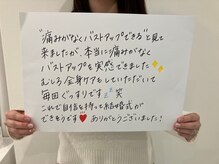 "痛みがなくバストアップできる"と見て
来ましたが、本当に痛みがなく
バストアップも実感できました✨
むしろ全身ケアもしていただいて
毎回ぐっすりです💤笑
これで自信を持って結婚式が
できそうです❤ ありがとうございました!